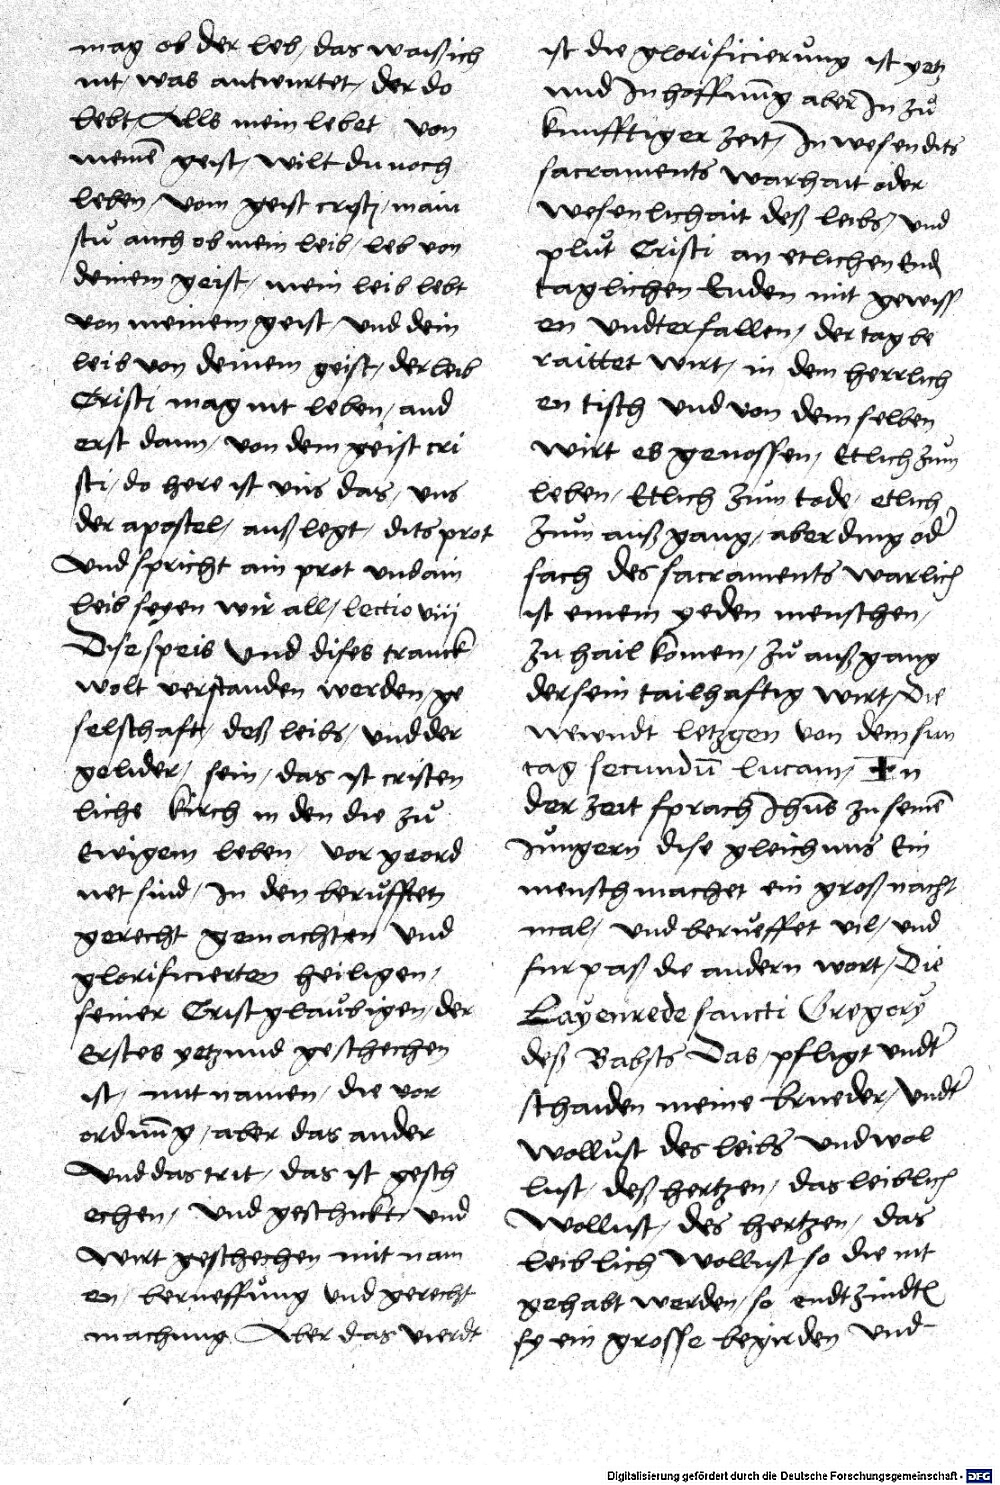 mag ob der leb / das waiß ich
nit / was antwurtet / der do
lebt / Alls mein lebet von
meinē geist / wilt du noch
leben / vom geist cristj / main
stu̇ auch ob mein leib / leb von
deinem geist / mein leib lebt
von meinem geist / vnd dein
leib von deinem geist / der leib
Cristi mag nit leben / and
erst dann / von dem geist cri
sti / do here ist vns das / vns
der apostel / außlegt / dits prot
vnd spricht ain prot vnd ain
leib seyen wir all / lectio viij
Dise speis vnd dises tranck
wolt verstanden werden / ge
selschaft / deß leibs / vnd der
gelider / sein / das ist cristen
lichs kirch in den die zů
Ewigem leben vor geord
net sind / In den berůfften
gerecht gemachten vnd
glorificierten heiligen /
seiner Cristglaůbigen / der
Erstes yetzund geschechen
ist / mit namen / die vor
ordnūg / aber das ander
vnd das trit / das ist gesch
echen / vnd geschickt vnd
wirt geschechen mit nam
en / berueffůng vnd gerecht
machung Aber das vierdt
ist die glorificierůng ist yetz
vnd In hoffnūg aber In zů
kunfftiger zeit / In wesen dits
sacraments warhait oder
wesenlichait deß leibs / vnd
plůt Cristi an etlichen End
taglichen Enden mit gewiss
en vndterfallen / der tag be
raittet wirt / in dem herrlich
en tisch vnd von dem selben
wirt es genossen / Etlich zům
leben / Etlich zům tode / etlich
zům außgang / aber ding od̄
sach des sacraments warlich
ist einem yeden menschen /
zu hail komen / zů außgang
der sein tailhaftig wirt / Die
newndt letzgen von dem sun
tag secundū lucam / In
der zeit sprach Jhūs zu seinē
Jůngern dise gleichnus Ein
mensch machet ein groß nacht
mal / vnd berůeffet vil / vnd
fur paß die andern wort / Die
Layenrede sancti Gregory
deß Babsts Das / pfligt vndt̄
schaiden meine brueder / vndt̄
wollust des leibs vnd wol
lust / deß hertzen / das leiblich
wollust / des hertzen / das
leiblich wollust so die nit
gehabt werden / so endtzindt
sy ein grosse begirden vnd